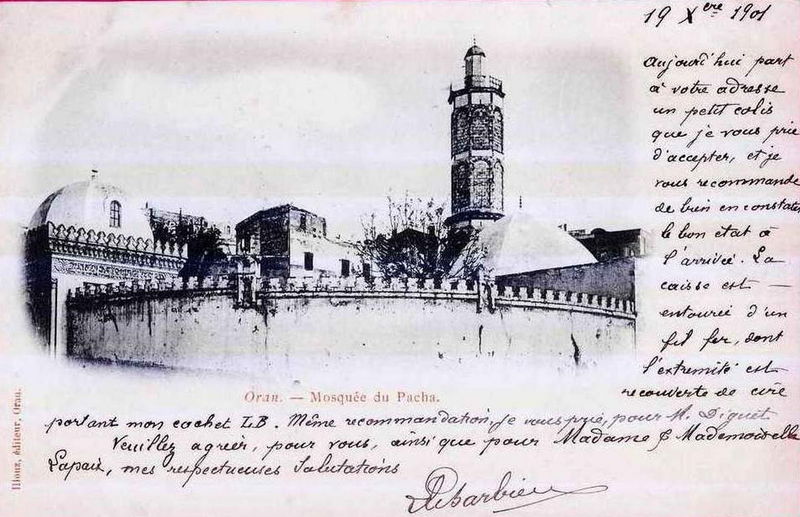 19 Xbre 1901
Aujourd'hui part
à votre adresse
un petit colis
que je vous prie
d'accepter, et je
vous recommande
de bien en constater
le bon état à
l'arrivée. La
caisse est
entourée d'un
fil fer, dont
l'extremité est
recouverte de cire
portant mon cachet LB. Même recommandation, je vous prie, pour M. Diguet
Veuillez agréer, pour vous, ainsi que pour Madame & Mademoiselle
mes respectueuses Salutations
Oran. — Mosquée du Pacha.
éditeur, Oran.